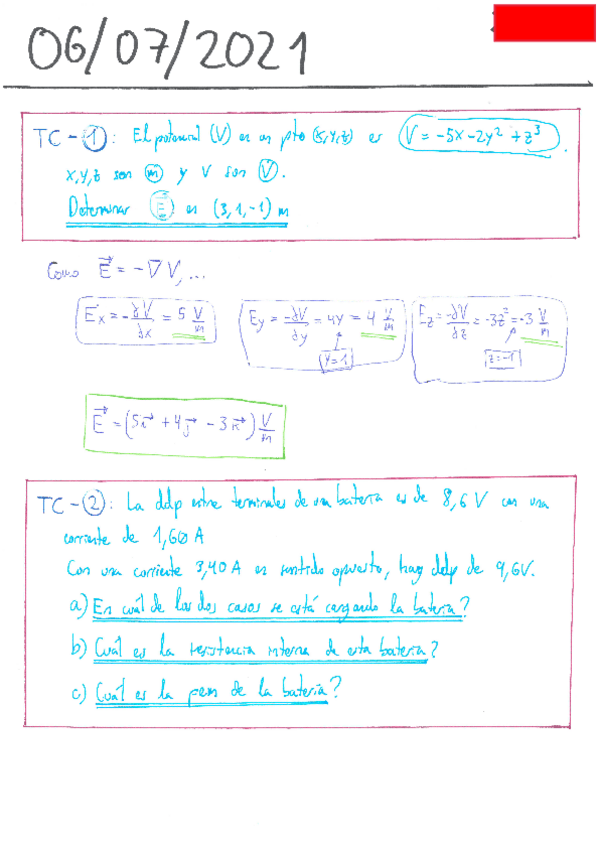 06/07/2021
TC - ①: El potencial (V) en un pto (x,y,z) es V = -5x - 2y² + z³.
x,y,z son m y V son V.
Determinar E⃗ en (3,1,-1) m
Como E⃗ = -∇V,...
Ex = -∂V/∂x = 5 V/m
Ey = -∂V/∂y = 4y = 4 V/m
y=1
Ez = -∂V/∂z = -3z² = -3 V/m
z=-1
E⃗ = (5i⃗ + 4j⃗ - 3k⃗) V/m
TC - ②: La ddp entre terminales de una batería es de 8,6 V con una
corriente de 1,60 A
Con una corriente 3,40 A en sentido opuesto, hay ddp de 9,6V.
a) En cuál de los dos casos se está cargando la batería?
b) Cuál es la resistencia interna de esta batería?
c) Cuál es la fem de la batería?